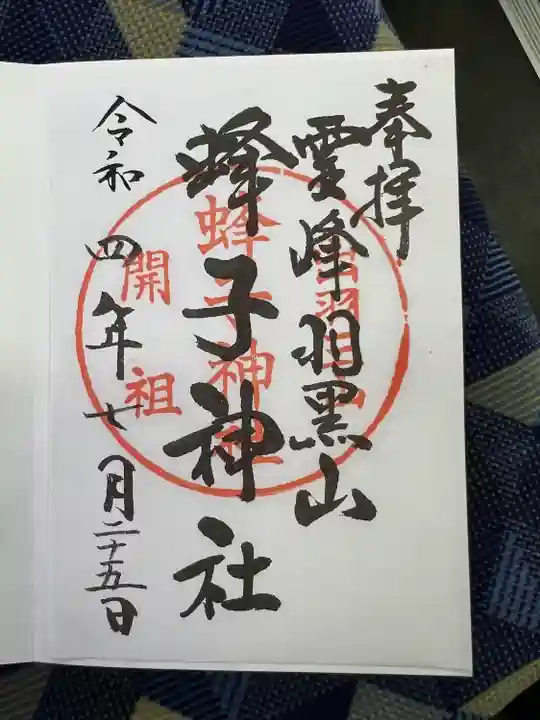 奉拝
霊峰羽黒山
蜂子神社
令和四年七月二十五日
蜂子神社
開祖